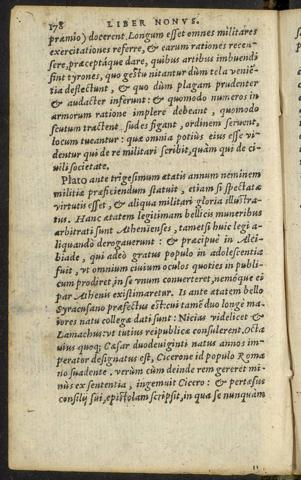 178 LIBER NONVS.
præmio) docerent. Longum esset omnes militares
exercitationes referre, & earum rationes recen-
sere, præceptáque dare, quibus artibus imbuendi
sint tyrones, quo gestu nitantur dum tela veniẽ-
tia deflectunt, & quo dùm plagam prudenter
& audacter inferunt: & quomodo numeros in
armorum ratione implere debeant, quomodo
scutum tractent. sudes figant, ordinem servent,
locum tueantur: quæ omnia potiùs eius esse vi-
dentur qui de re militari scribit, quàm qui de ci-
uili societate.
Plato ante trigesimum ætatis annum neminem
militiæ præficiendum statuit, etiam si spectatæ
virtutis esset, & aliqua militari gloria illustra-
tus. Hanc ætatem legitimam bellicis muneribus
arbitrati sunt Athenienses, tametsi huic legi a-
liquandò derogauerunt: & præcipuè in Alci-
biade, qui adeò gratus populo in adolescentia
fuit, vt omnium ciuium oculos quoties in publi-
cum prodiret, in se vnum conuerteret, nemóque ei
par Athenis existimaretur. Is ante ætatem bello
Syracusano præfectus est: cui tamẽ duo longè ma-
iores natu collegæ dati sunt: Nicias videlicet &
Lamachus: vt tutius reipublicæ consulerent. Octa
uius quoq; Cæsar duodeuiginti natus annos im-
perator designatus est, Cicerone id populo Roma
no suadente. verùm cùm deinde rem gereret mi-
nùs ex sententia, ingemuit Cicero: & pertæsus
consilij sui, epistolam scripsit, in qua se nunquàm